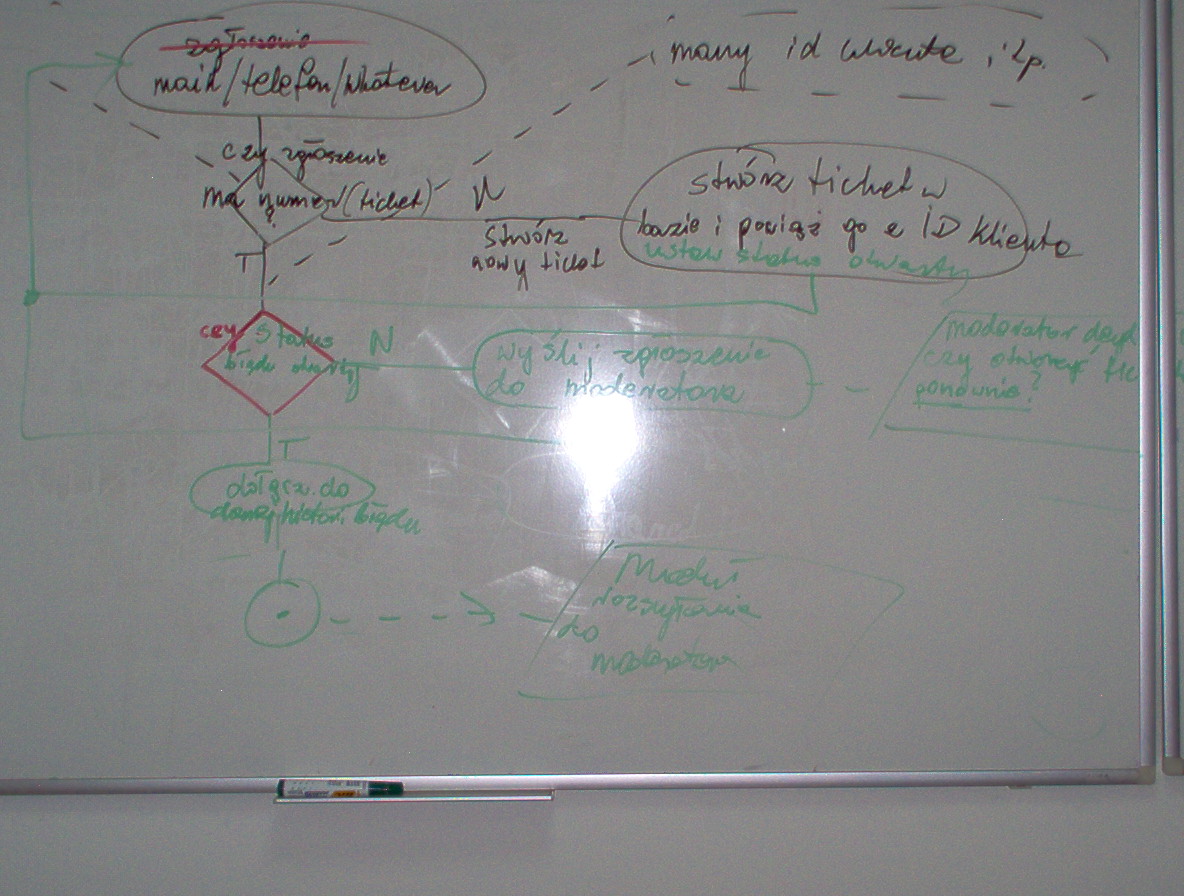 zgłoszenie
mail/telefon/whatever
mamy id klienta, itp.
czy zgłoszenie
ma numer (ticket)
?
N
stwórz
nowy ticket
stwórz ticket w
bazie i powiąż go z ID klienta
ustaw status otwarty
T
czy status
błędu otwarty
N
wyślij zgłoszenie
do moderatora
moderator decyd
czy otworzyć tic
ponownie?
T
dołącz do
danej historii błędu
Moduł
rozsyłania
do
moderatora